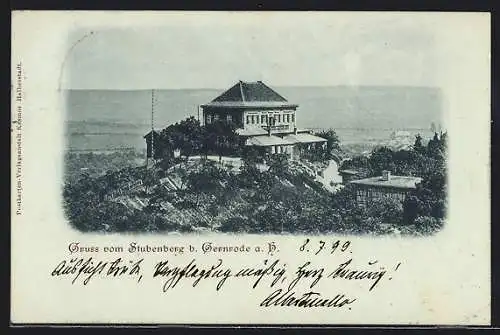 Postkarten-Verlagsanstalt Kosmos Halberstadt.
Gruss vom Stubenberg b. Gernrode a. H. 8. 7. 99
Aussicht, Verpflegung mäßig, Herz traurig!